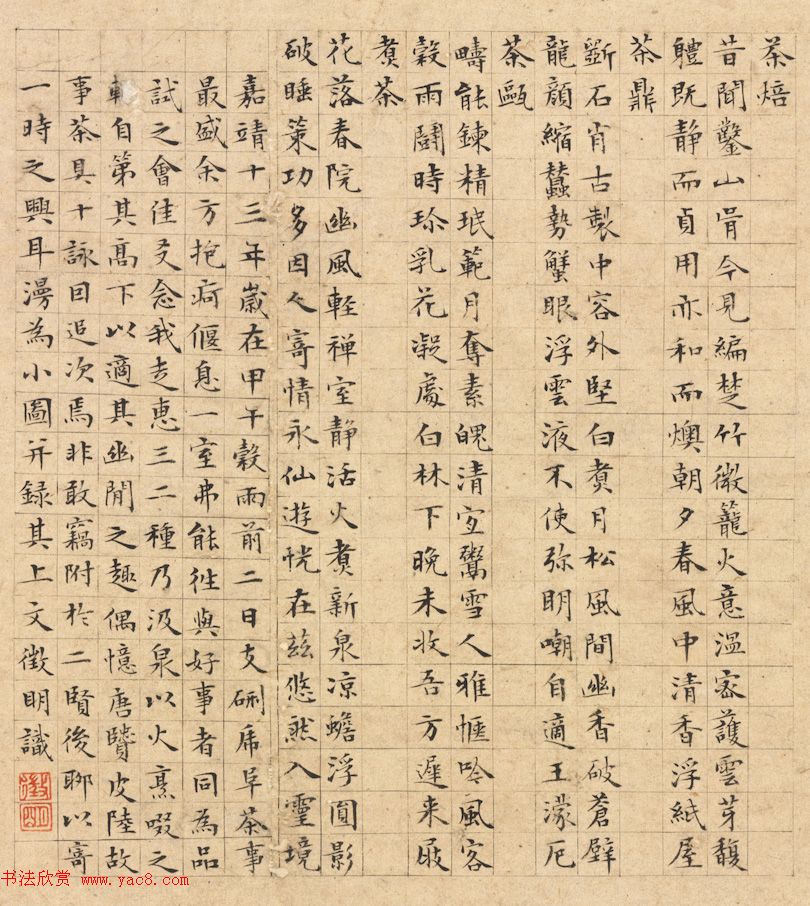 茶焙
昔聞鑿山骨今見編楚竹微籠火意溫密護雲芽馥
軆既静而貞用亦和而燠朝夕春風中清香浮紙屋
茶鼎
斵石肖古製中容外堅白煮月松風間幽香破蒼壁
龍顏縮蠶勢蟹眼浮雲液不使弥明嘲自適王濛厄
茶甌
疇能鍊精珉範月奪素魄清宜鬻雪人雅愜吟風客
穀雨鬪時珎乳花凝處白林下晚未收吾方遲来屐
煮茶
花落春院幽風軽禅室静活火煮新泉凉蟾浮圓影
破睡策功多因人寄情永仙遊恍在茲悠然入靈境
嘉靖十三年歲在甲午穀雨前二日支硎虎阜茶事
最盛余方抱疴偃息一室弗能往與好事者同為品
試之會佳友念我走惠三二種乃汲泉以火烹啜之
輒自第其高下以適其幽閒之趣偶憶唐賢皮陸故
事茶具十詠因追次焉非敢竊附於二賢後聊以寄
一時之興耳漫為小圖并録其上文徵明識
徵明
书法欣赏 www.yac8.com